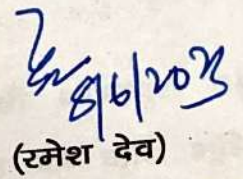 8/6/2023
(रमेश देव)